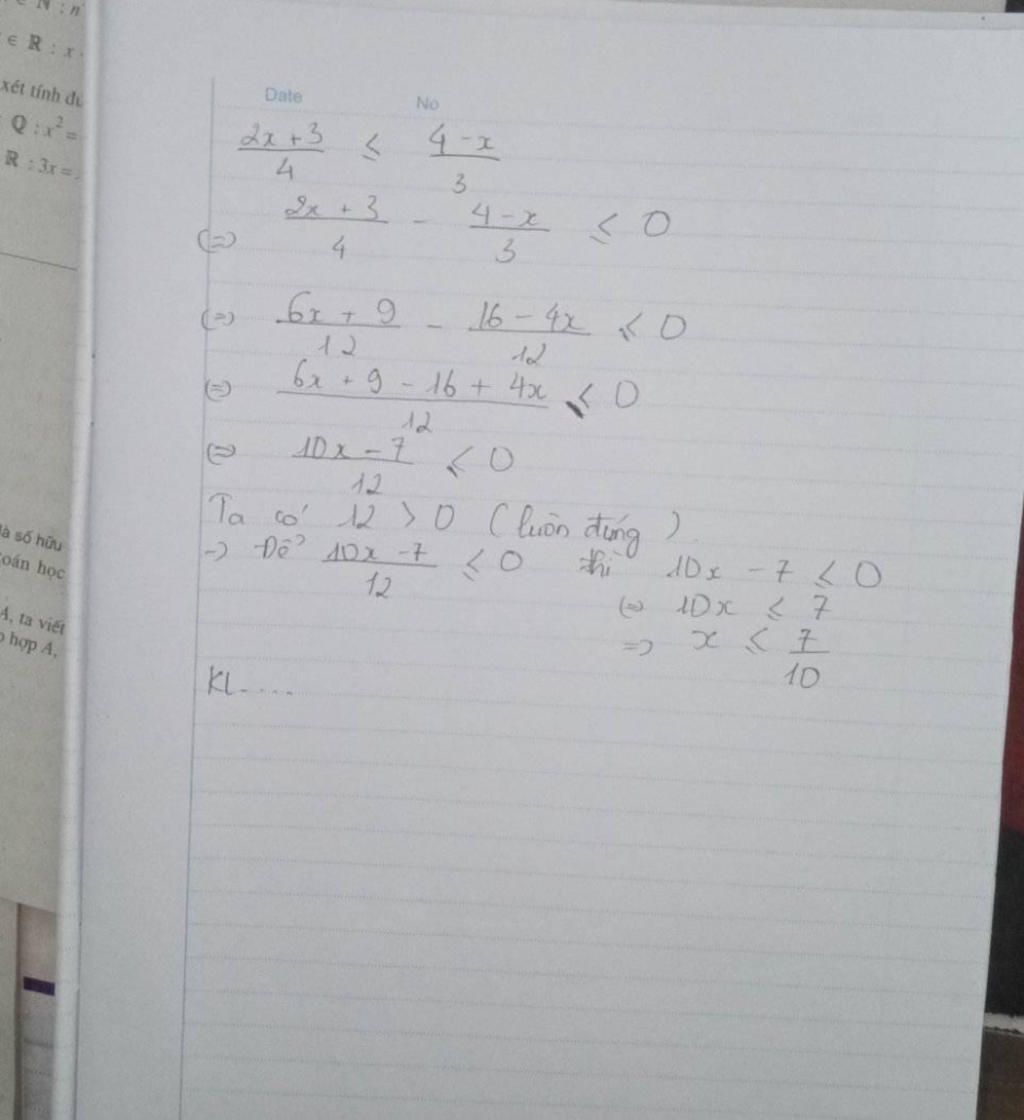 N : n
∈ R : x
xét tính đú
Q : x² =
R : 3x =
là số hữu
toán học
A, ta viết
hợp A,
Date No
2x + 3 / 4 ≤ 4 - x / 3
(=) 2x + 3 / 4 - 4 - x / 3 ≤ 0
(=) 6x + 9 / 12 - 16 - 4x / 12 ≤ 0
(=) 6x + 9 - 16 + 4x / 12 ≤ 0
(=) 10x - 7 / 12 ≤ 0
Ta có 12 > 0 (luôn đúng)
=) Để 10x - 7 / 12 ≤ 0 thì 10x - 7 ≤ 0
(=) 10x ≤ 7
=) x ≤ 7 / 10
KL.....